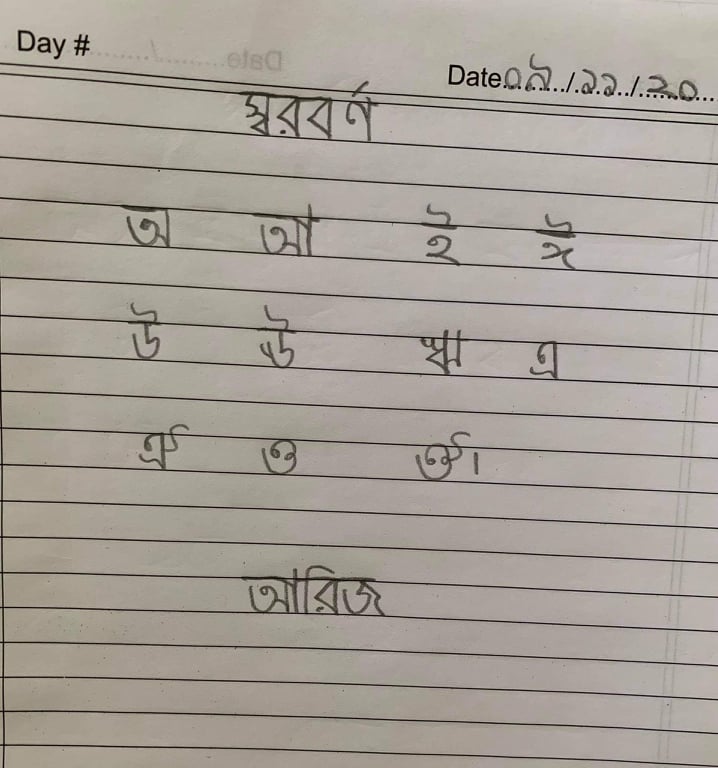 Day #
Date ০৯/১১/২০
স্বরবর্ণ
অ আ ই ঈ
উ ঊ ঋ এ
ঐ ও ঔ।
আরিজ